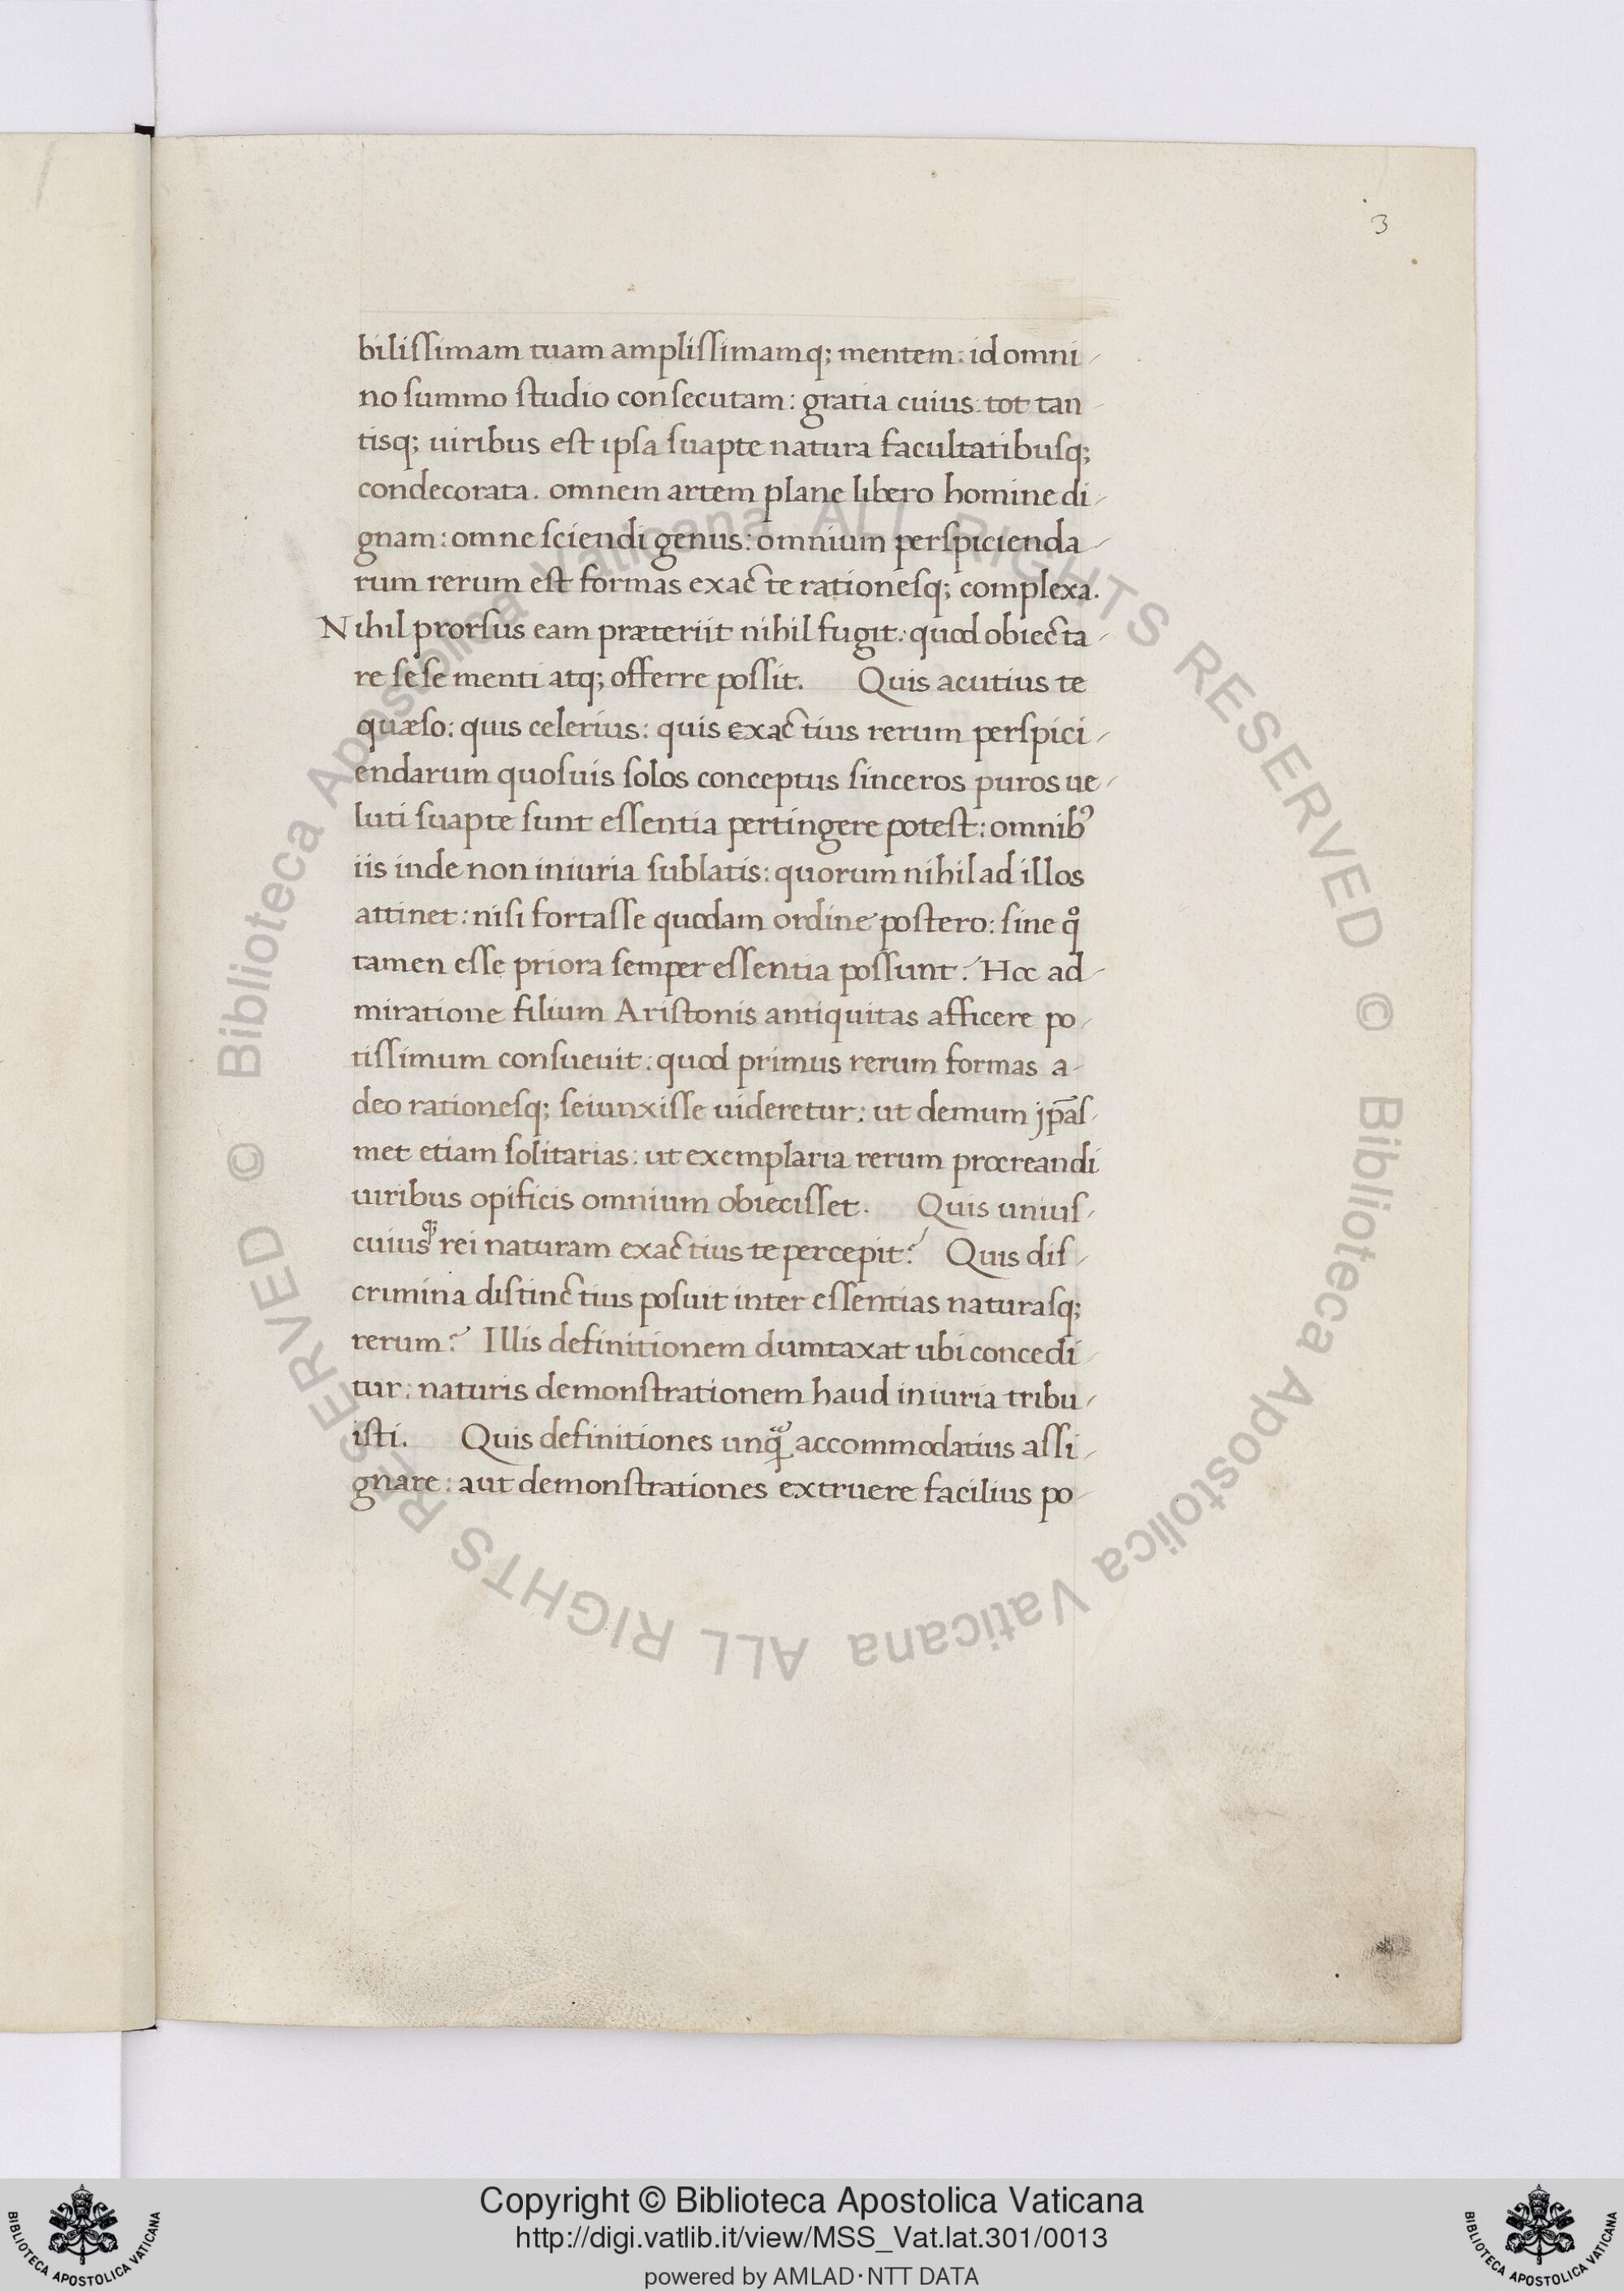 3
biliſſimam tuam ampliſſimamq; mentem: id omni-
no ſummo ſtudio conſecutam: gratia cuius tot tan-
tisq; uiribus eſt ipſa ſuapte natura facultatibuſq;
condecorata. omnem artem plane libero homine di-
gnam: omne ſciendi genus: omnium perſpicienda-
rum rerum eſt formas exacte rationeſq; complexa.
Nihil prorſus eam præteriit nihil fugit: quod obiecta-
re ſeſe menti atq; offerre poſſit. Quis acutius te
quæſo: quis celerius: quis exactius rerum perſpici-
endarum quoſuis ſolos conceptus ſinceros puros ue-
luti ſuapte ſunt eſſentia pertingere poteſt: omnibꝰ
iis inde non iniuria ſublatis: quorum nihil ad illos
attinet: niſi fortaſſe quodam ordine poſtero: ſine qͦ
tamen eſſe priora ſemper eſſentia poſſunt? Hoc ad-
miratione filium Ariſtonis antiquitas afficere po-
tiſſimum conſueuit: quod primus rerum formas a-
deo rationeſq; ſeiunxiſſe uideretur: ut demum jp̄aſ-
met etiam ſolitarias: ut exemplaria rerum procreandi
uiribus opificis omnium obieciſſet. Quis uniuſ-
cuiusq; rei naturam exactius te percepit? Quis diſ-
crimina diſtinctius poſuit inter eſſentias naturaſq;
rerum? Illis definitionem dumtaxat ubi concedi-
tur: naturis demonſtrationem haud iniuria tribu-
iſti. Quis definitiones unqᷓ accommodatius aſſi-
gnare: aut demonſtrationes extruere facilius po-
© Biblioteca Apostolica Vaticana ALL RIGHTS RESERVED
© Biblioteca Apostolica Vaticana ALL RIGHTS RESERVED
Copyright © Biblioteca Apostolica Vaticana
http://digi.vatlib.it/view/MSS_Vat.lat.301/0013
powered by AMLAD·NTT DATA
BIBLIOTECA APOSTOLICA VATICANA
BIBLIOTECA APOSTOLICA VATICANA